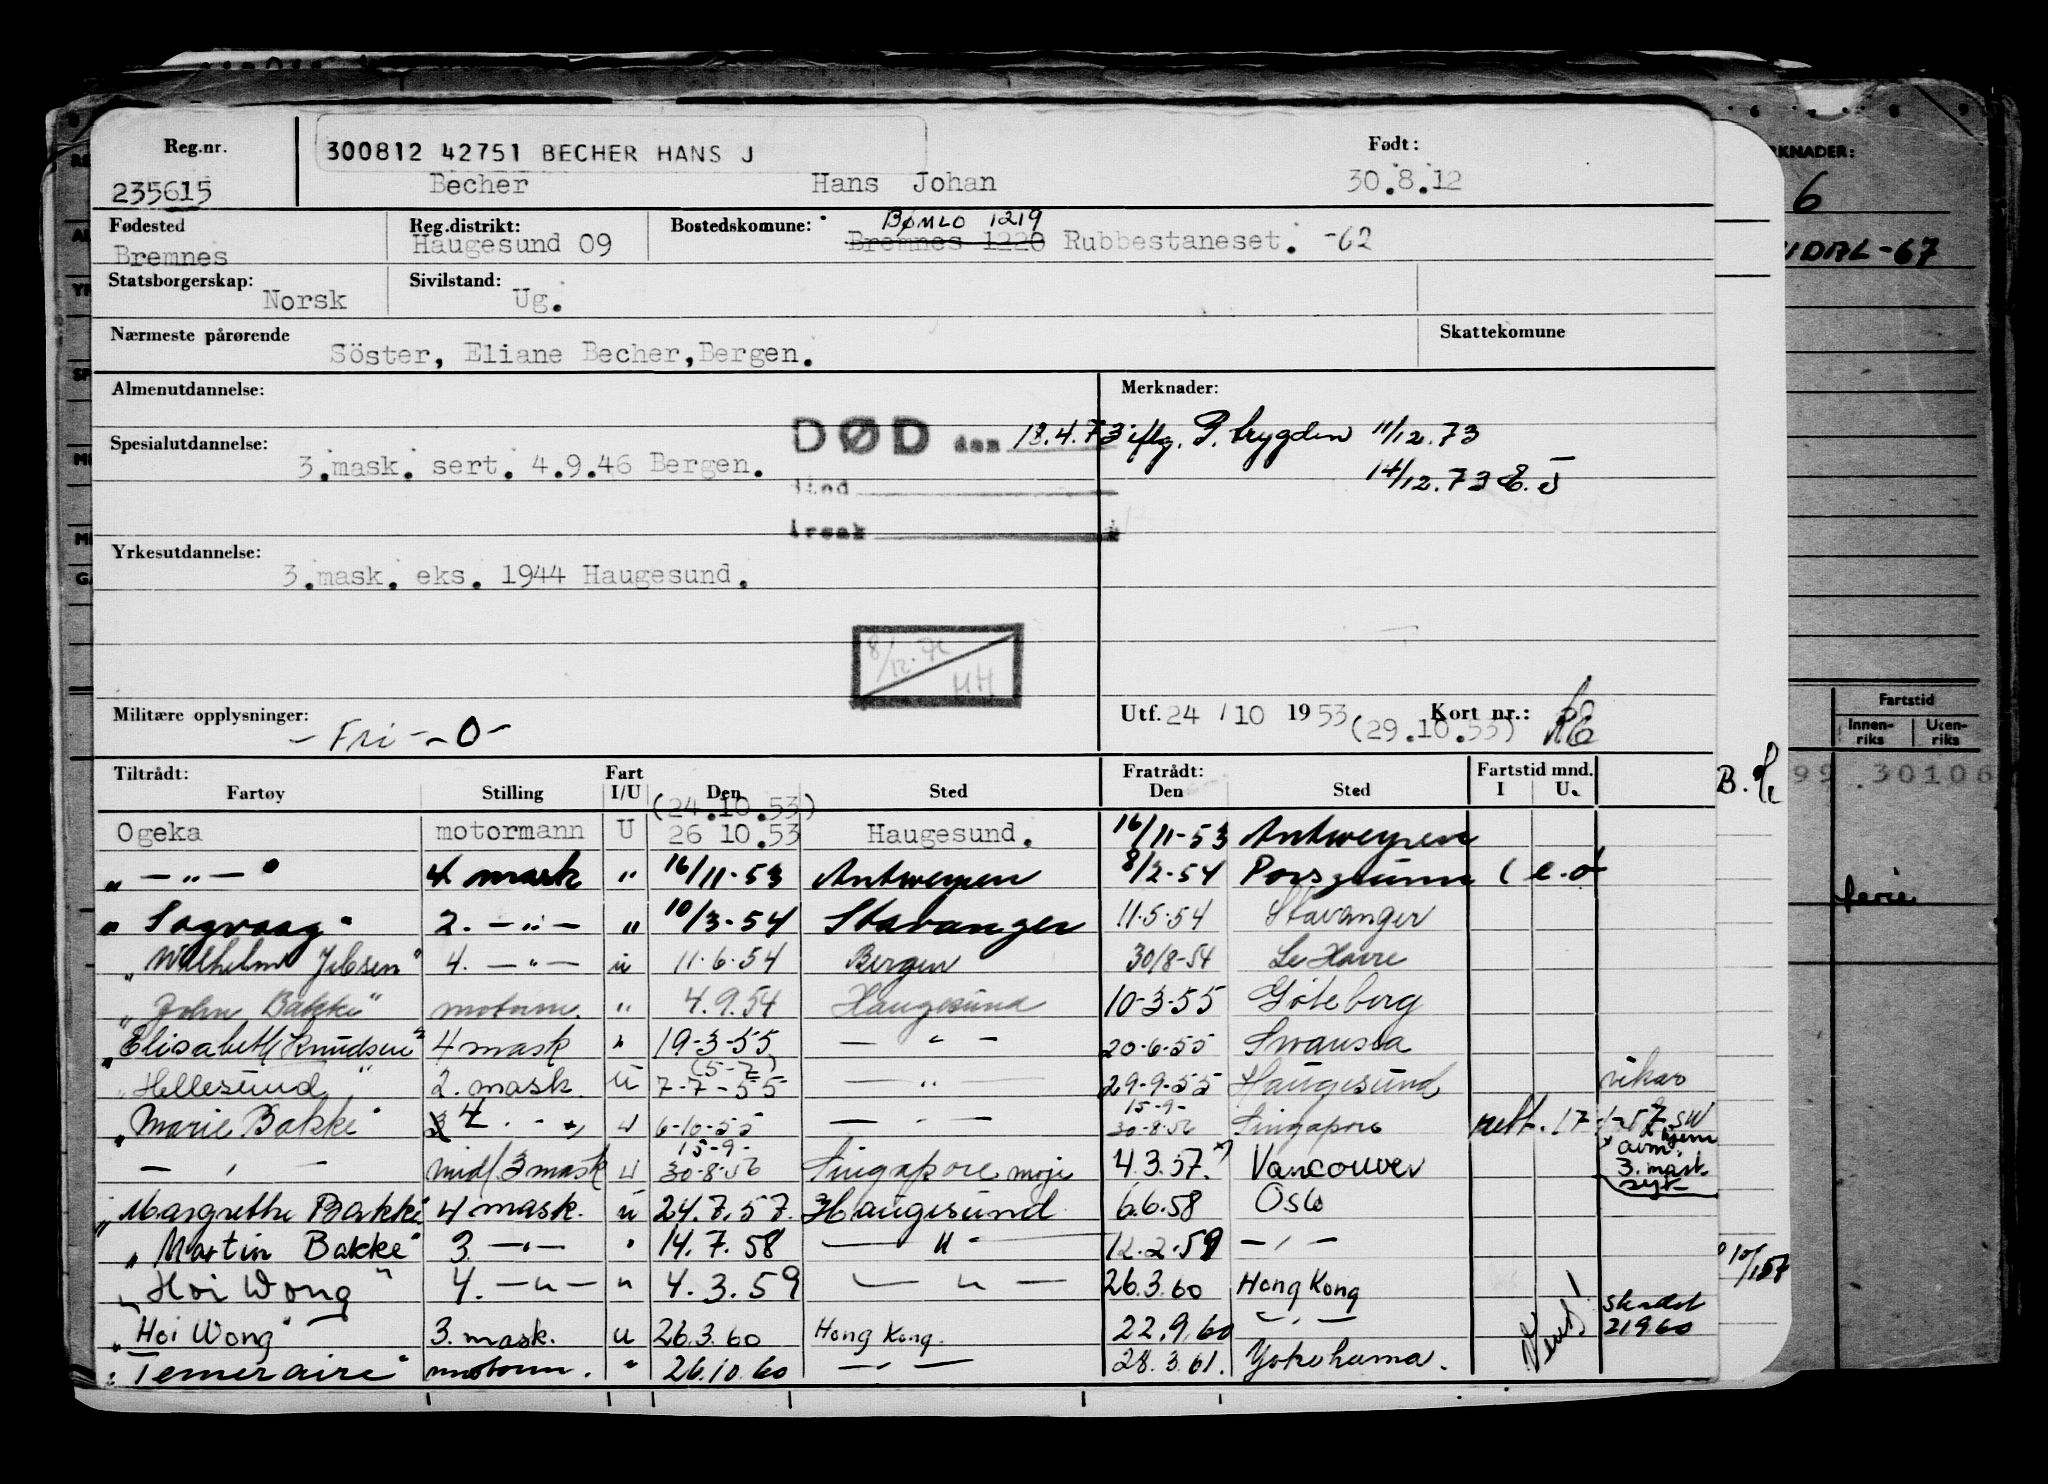 Reg.nr. 300812 42751 BECHER HANS J Født:
235615 Becher Hans Johan 30.8.12
Fødested Reg.distrikt: Bostedskomune: BØMLO 1219
Bremnes Haugesund 09 Bremnes 1220 Rubbestaneset. -62
Statsborgerskap: Norsk Sivilstand: Ug.
Nærmeste pårørende Skattekomune
Söster, Eliane Becher, Bergen.
Almenutdannelse: Merknader:
DØD den 18.4.73 iflg. P. trygden 11/12.73
Spesialutdannelse: 14/12.73 E.J
3.mask. sert. 4.9.46 Bergen.
sted
årsak
Yrkesutdannelse:
3.mask. eks. 1944 Haugesund.
8/12.71
HH
Militære opplysninger: Utf. 24 / 10 1953 Kort nr.:
- Fri - -0- (29.10.53)
Tiltrådt: Fart Fratrådt: Fartstid mnd.
Fartøy Stilling I/U Den Sted Den Sted I U.
(24.10.53)
Ogeka motormann U 26 10.53 Haugesund. 16/11-53 Antwerpen
" — " — " 4 mask " 16/11-53 Antwerpen 8/2-54 Porsgrunn
"Sagvaag" 2. — " — " 10/3-54 Stavanger 11.5.54 Stavanger
"Wilhelm Jebsen" 4. — " — u 11.6.54 Bergen 30/8-54 Le Havre
"John Bakke" motorm. " 4.9.54 Haugesund 10-3-55 Göteborg
"Elisabeth Knudsen" 4 mask " 19-3-55 — " — 20-6-55 Swansea
(5-7)
"Hellesund" 2. mask. U 7-7-55 — " — 29-9-55 Haugesund vikar
15-9-
"Marie Bakke" 3 4 — " — u 6-10-55 — " — 30-8-56 Singapore
15-9-
— " — midl 3 mask u 30-8-56 Singapore 4.3.57. Vancouver
avm. hjem
3. mask.
"Margrethe Bakke" 4 mask. u 24.7.57. Haugesund 6.6.58 Oslo
"Martin Bakke" 3 — " — " 14.7.58 — " — 12.2.59 — " —
"Hoi Wong" 4. — " — " 4.3.59 — " — 26.3.60 Hong Kong
"Hoi Wong" 3. mask. u 26.3.60 Hong Kong. 22.9.60 — " — skadet 21960
"Temeraire" motorm. " 26.10.60 — " — 28.3.61. Yokohama.
KNADER:
6
DAL-67
Fartstid
Innen-riks Uten-riks
99 30106
B.
ferie